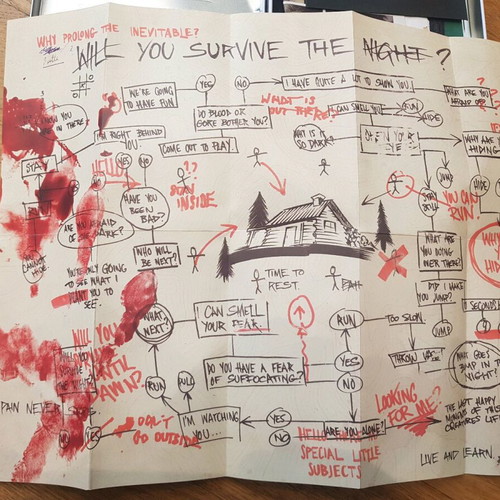 WHY PROLONG THE INEVITABLE?
WILL YOU SURVIVE THE NIGHT?
WE'RE GOING
TO HAVE FUN.
YES
NO
I HAVE QUITE A LOT TO SHOW YOU.
WHAT ARE YOU
WHAT IS
OUT THERE?
I CAN SMELL YOU
RUN
HIDE
DO BLOOD OR
GORE BOTHER YOU?
I'M RIGHT BEHIND
YOU
COME OUT TO PLAY.
WHY IS IT
SO DARK?
OPEN YOUR
EYE
WHY ARE YOU
HIDING
IN THERE.
STAY
HELLO
YES
NO
??
STAY
INSIDE
JUMP
HIDE
STAY
STILL
YOU CAN
RUN
HAVE YOU
BEEN
BAD?
ARE YOU AFRAID
OF THE DARK?
CANNOT
HIDE
WHO WILL
BE NEXT?
WHAT ARE
YOU DOING
OVER THERE?
WHY
YOU'RE ONLY GOING
TO SEE WHAT I
WANT YOU TO
SEE
TIME TO
REST.
DID I MAKE
YOU JUMP?
SECONDS
WHAT
NEXT?
I CAN SMELL
YOUR FEAR.
RUN
TOO SLOW.
JUMP
WILL YOU
THROW
WHAT GOES
BUMP IN T
NIGHT?
DO YOU HAVE A FEAR
OF SUFFOCATING?
YES
NO
RUN
LOOKING
FOR ME?
PAIN NEVER
DON'T
GO OUTSIDE
I'M WATCHING
YOU...
YES
NO
YES
ARE YOU ALONE?
HELLO
SPECIAL LITTLE
SUBJECTS
THE LAST HAPPY
CREATURES LIFE
LIVE AND LEARN